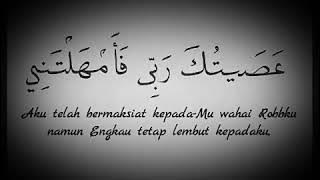 عَصَيتُكَ رَبِّي فَأَمْهَلْتَنِي
Aku telah bermaksiat kepada-Mu wahai Robbku
namun Engkau tetap lembut kepadaku.